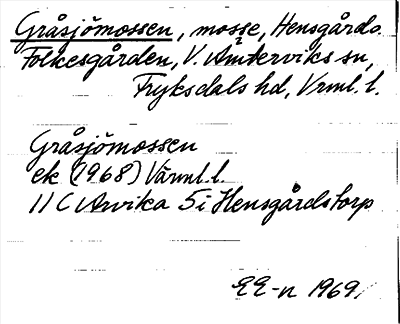 Gråsjömossen, mosse, Hensgård o.
Folkesgården, V. Ämterviks sn,
Fryksdals hd, Vrml. l.
Gråsjömossen
ek (1968) Värml. l.
11 C Arvika 5 i Hensgårdstorp
EE-n 1969